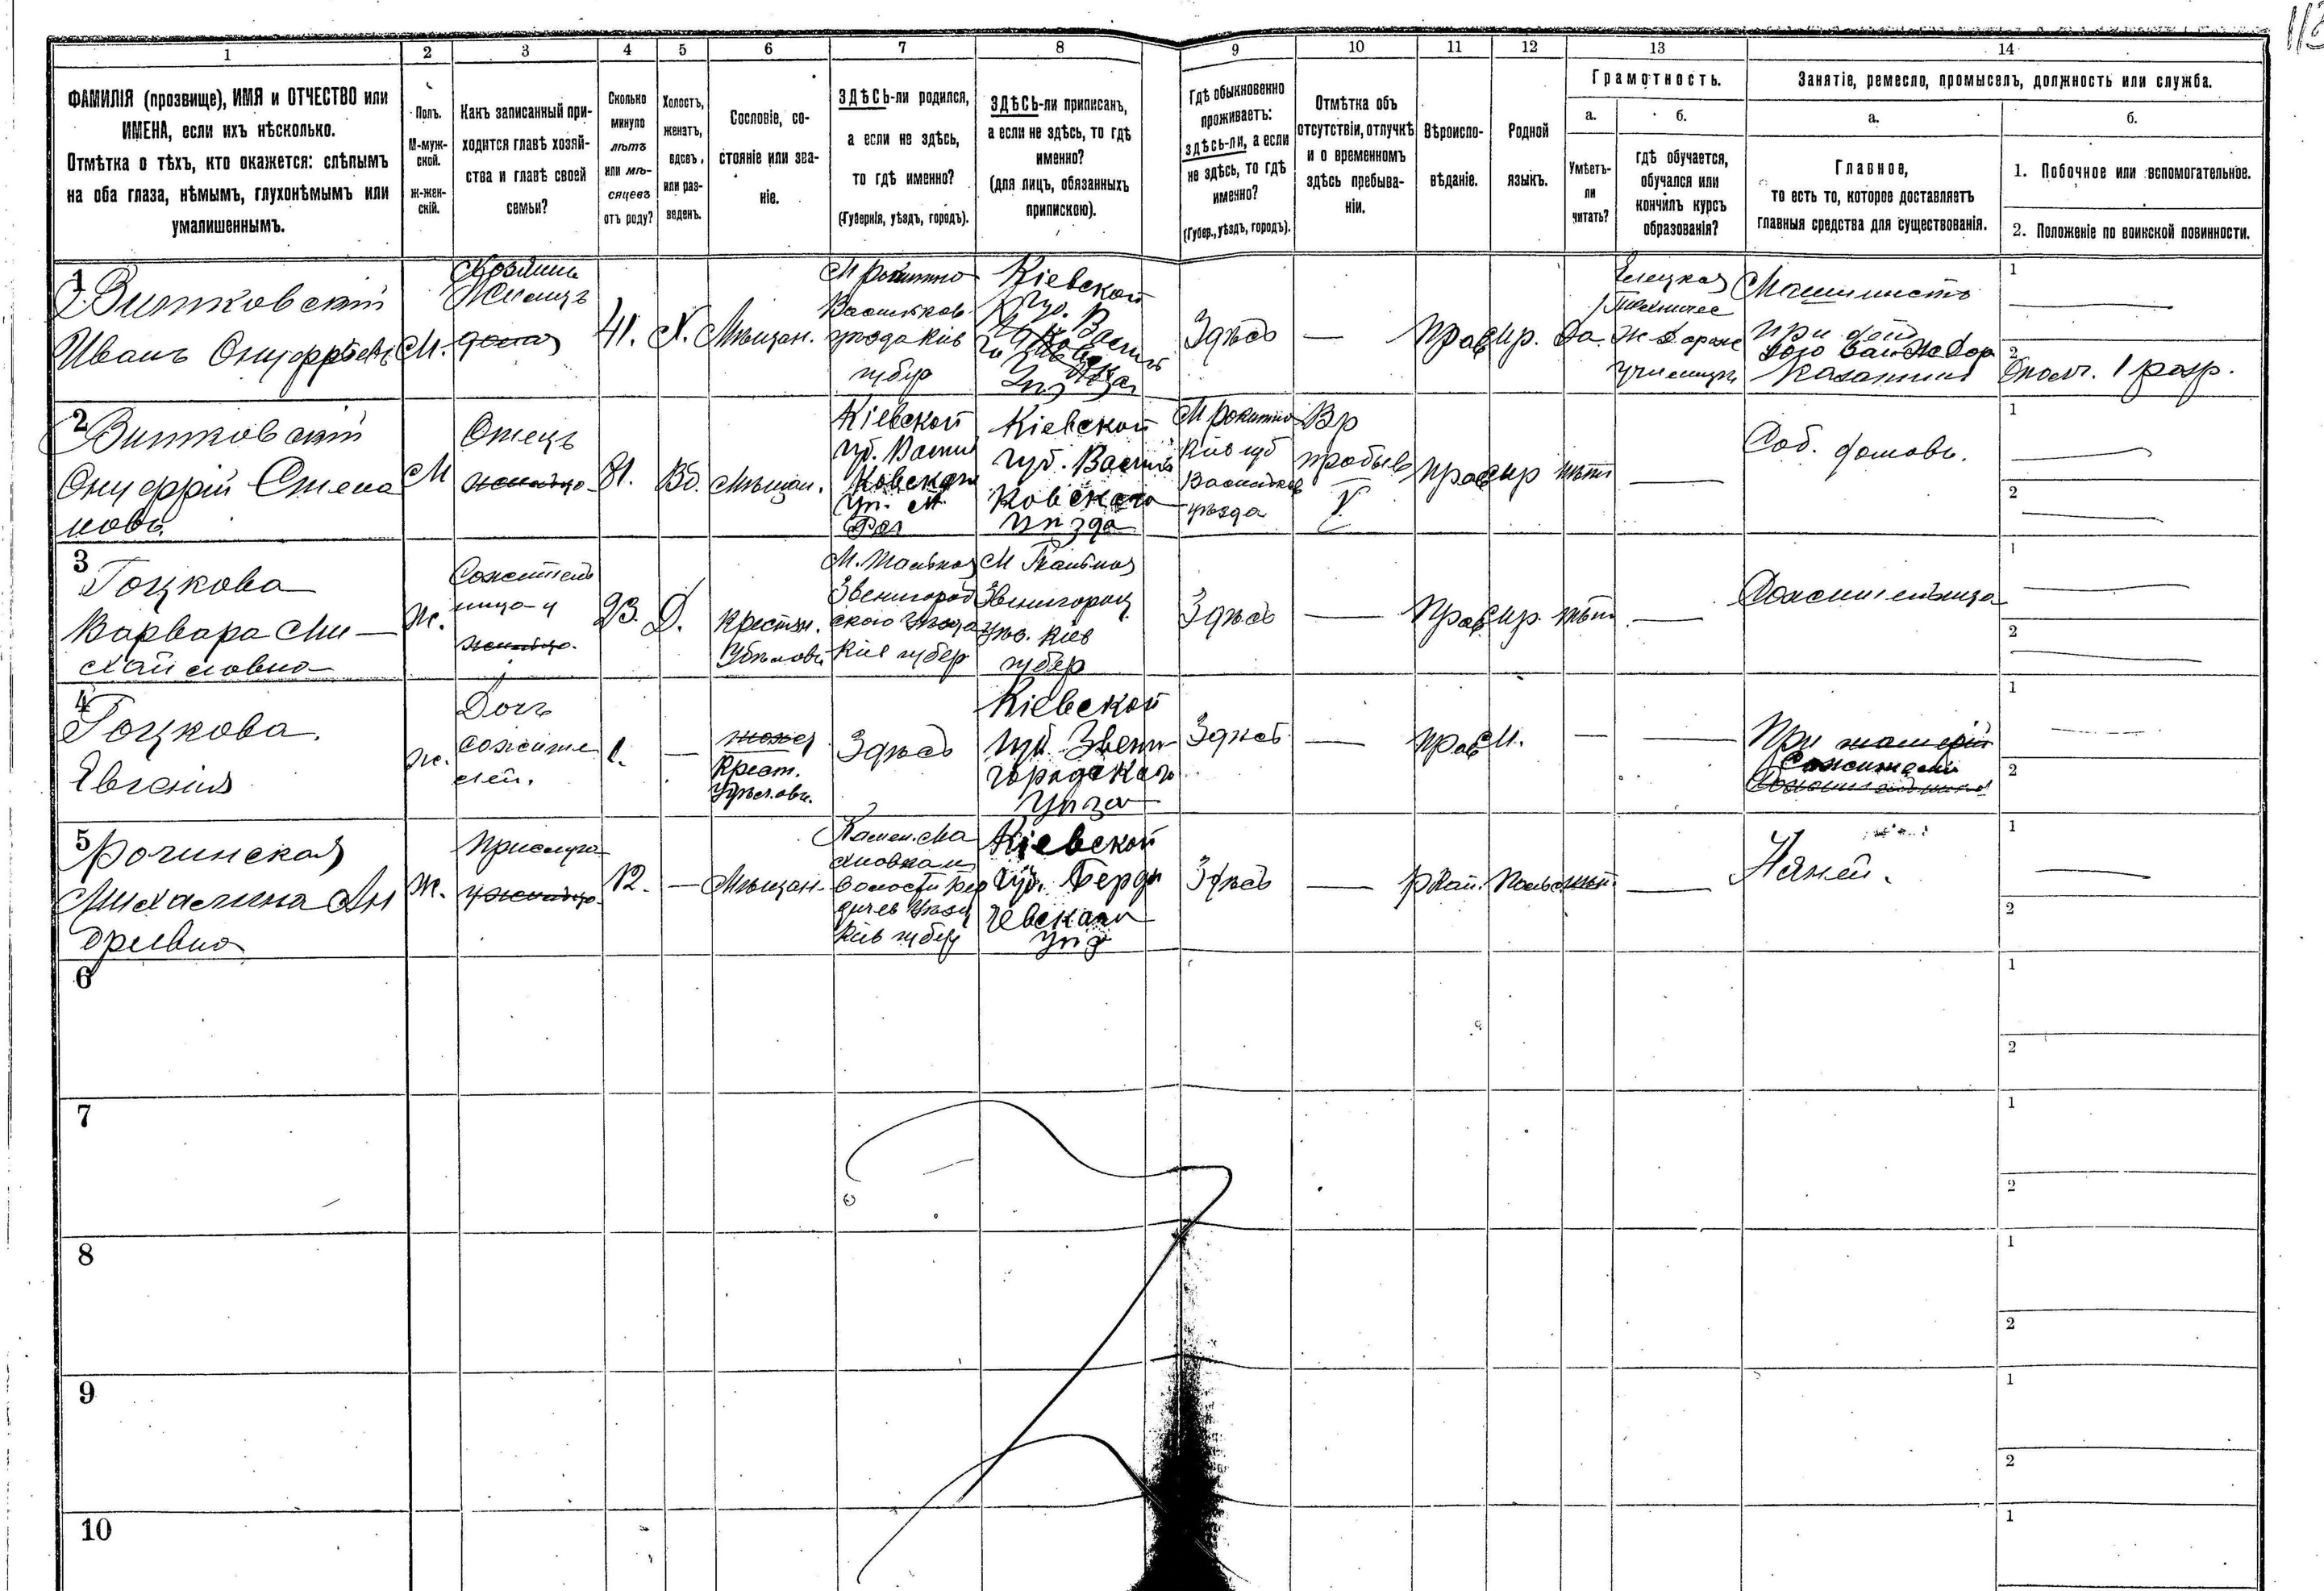 1 2 3 4 5 6 7 8 9 10 11 12 13 14
ФАМИЛІЯ (прозвище), ИМЯ и ОТЧЕСТВО или
ИМЕНА, если ихъ нѣсколько.
Отмѣтка о тѣхъ, кто окажется: слѣпымъ
на оба глаза, нѣмымъ, глухонѣмымъ или
умалишеннымъ.
Полъ.
М-муж-
ской.
ж-жен-
скій.
Какъ записанный при-
ходится главѣ хозяй-
ства и главѣ своей
семьи?
Сколько
минуло
лѣтъ
или мѣ-
сяцевъ
отъ роду?
Холостъ,
женатъ,
вдовъ,
или раз-
веденъ.
Сословіе, со-
стояніе или зва-
ніе.
ЗДѢСЬ-ли родился,
а если не здѣсь,
то гдѣ именно?
(Губернія, уѣздъ, городъ).
ЗДѢСЬ-ли приписанъ,
а если не здѣсь, то гдѣ
именно?
(для лицъ, обязанныхъ
припискою).
Гдѣ обыкновенно
проживаетъ:
здѣсь-ли, а если
не здѣсь, то гдѣ
именно?
(Губер., уѣздъ, городъ).
Отмѣтка объ
отсутствіи, отлучкѣ
и о временномъ
здѣсь пребыва-
ніи.
Вѣроиспо-
вѣданіе.
Родной
языкъ.
Грамотность.
а.
Умѣетъ-
ли
читать?
б.
гдѣ обучается,
обучался или
кончилъ курсъ
образованія?
Занятіе, ремесло, промыселъ, должность или служба.
а.
Главное,
то есть то, которое доставляетъ
главныя средства для существованія.
б.
1. Побочное или вспомогательное.
2. Положеніе по воинской повинности.
1
Витковскій
Иванъ Онуфріевъ
М.
Хозяинъ
41.
Х.
Мѣщан.
М Рокитно
Васильков
уѣзда Кіев
губер
Кіевской
Губ.
Здѣсь
—
Прав
Да.
Елецкая
Техничес
Ж Дорож
училищѣ
Машинистъ
при
Казатинъ
1
2
Ополч. 1 разр.
2
Витковскій
Онуфрій Степа
новъ
М
Отецъ
81.
Вд.
Мѣщан.
Кіевской
губ. Васил
Ковскаго
Уѣ. М
Рок
Кіевской
губ. Василь
Ковскаго
уѣзда
М Рокитно
Кіев губ
Васильков
уѣзда
Вр
пробыв
Прав
нѣтъ
—
Соб. домовъ.
1
2
3
Гоцкова
Варвара Ми-
хайловна
Ж.
Сожитель
ница
23.
Д.
Крестьян.
М. Тальное
Звенигород
скаго Уѣзда
Кіев губер
М Тальное
Звенигород
Уѣз. Кіев
губер
Здѣсь
—
Прав
нѣтъ
—
Сожительница
1
2
4
Гоцкова
Евгенія
ж.
Дочь
сожите
лей.
1.
—
Крест.
Здѣсь
Кіевской
губ. Звени
городскаго
Уѣзда
Здѣсь
—
Прав
—
—
При
1
2
5
Рочинская
Михалина Ан
дреевна
Ж.
Прислуга
12.
—
Мѣщан.
волости Бер
дичев Уѣзд
Кіев губер
Кіевской
губ. Берди
чевскаго
Уѣз
Здѣсь
—
РКат.
Польс
—
Няней.
1
2
6
1
2
7
1
2
8
1
2
9
1
2
10
1